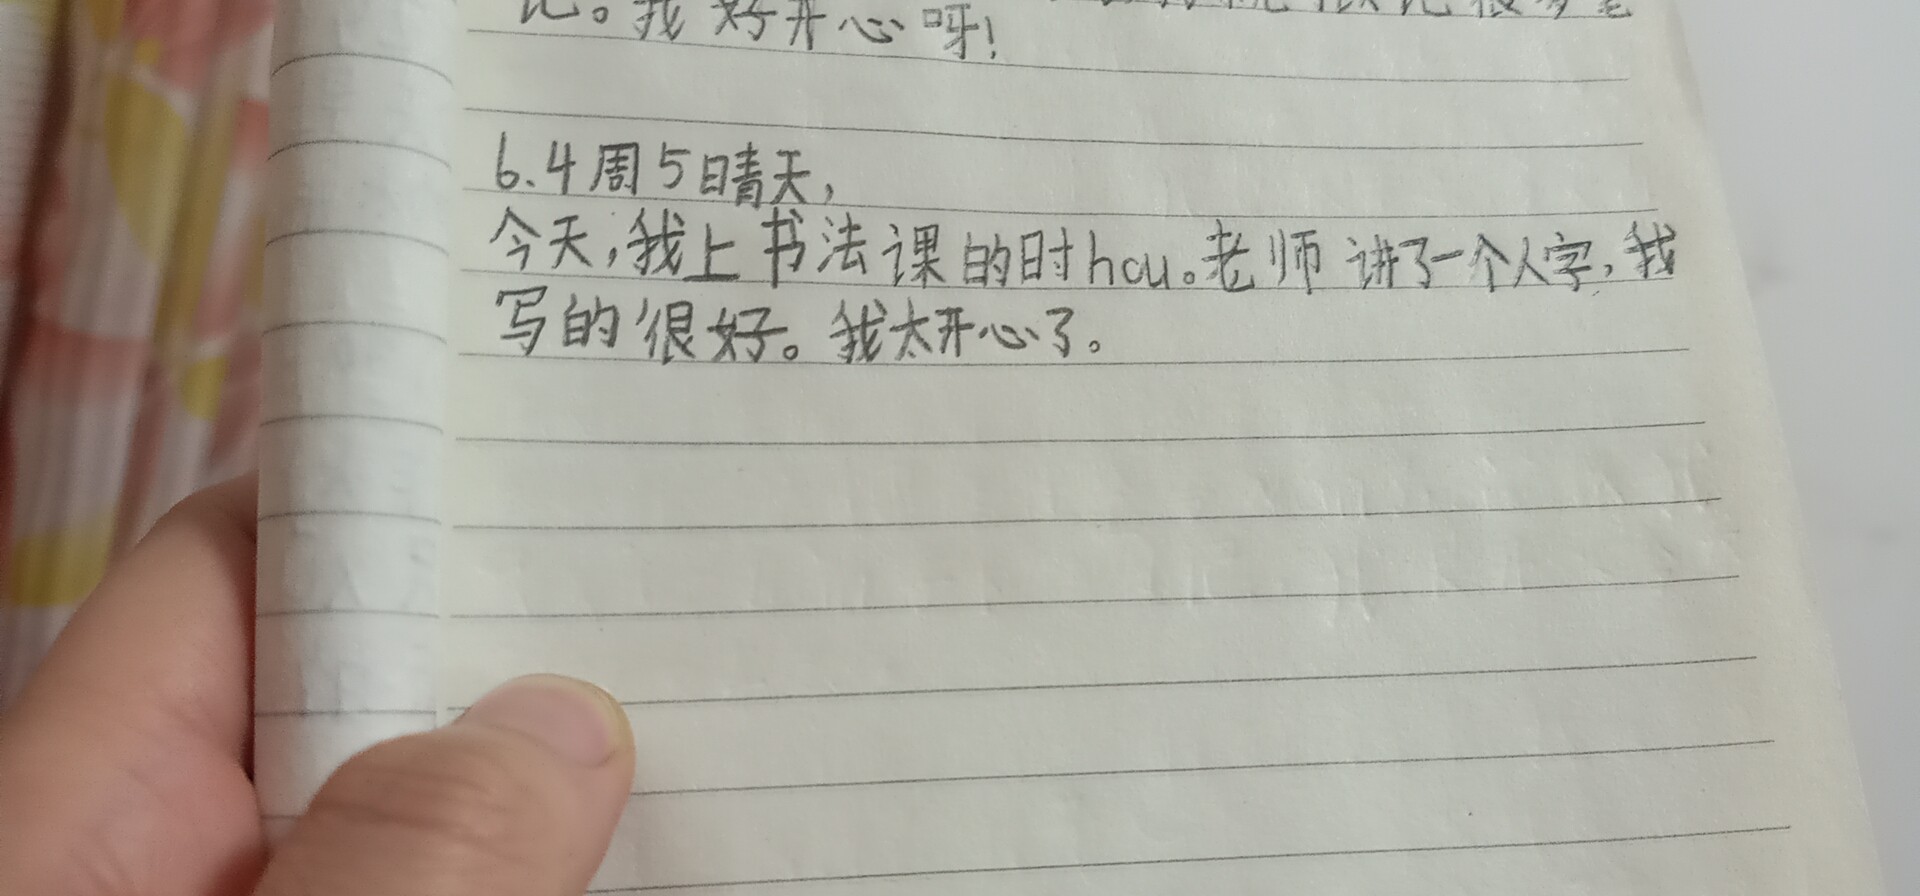 记。我好开心呀!
6.4周5晴天,
今天,我上书法课的时hou。老师讲了一个人字,我
写的很好。我太开心了。